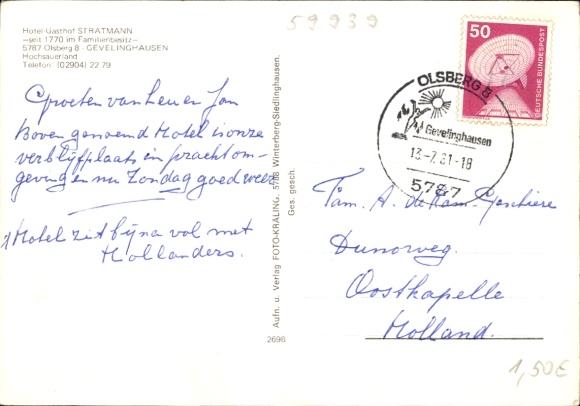 59939
Hotel-Gasthof STRATMANN
—seit 1770 im Familienbesitz—
5787 Olsberg 8 - GEVELINGHAUSEN
Hochsauerland
Telefon: (02904) 22 79
Groeten van Leu en Jan
Boven genoemd Hotel is onze
verblijfplaats in pracht om-
geving en nu Zondag goed weer
Hotel zit bijna vol met
Hollanders.
Aufn. u. Verlag FOTO-KRALING, 5788 Winterberg-Siedlinghausen.
Ges. gesch.
2698
50
DEUTSCHE BUNDESPOST
OLSBERG 8
Gevelinghausen
13.-7.81-18
5787
Fam. A. de Ram-Geschiere
Dunoweg.
Oostkapelle
Holland.
1,50€